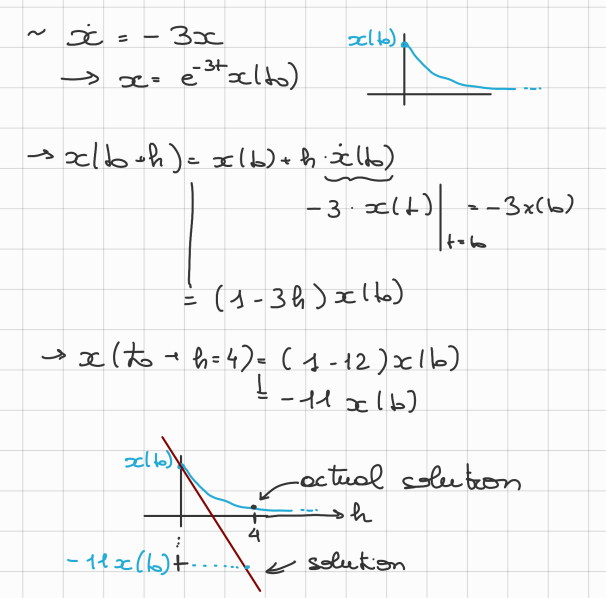 ~ ẋ = - 3x
x(t₀)
→ x = e^{-3t} x(t₀)
→ x(t₀+h) = x(t₀) + h · ẋ(t₀)
-3 · x(t) | t=t₀ = -3x(t₀)
= (1 - 3h) x(t₀)
→ x(t₀ + h=4) = (1-12) x(t₀)
= -11 x(t₀)
x(t₀)
actual solution
h
4
-11 x(t₀)
solution